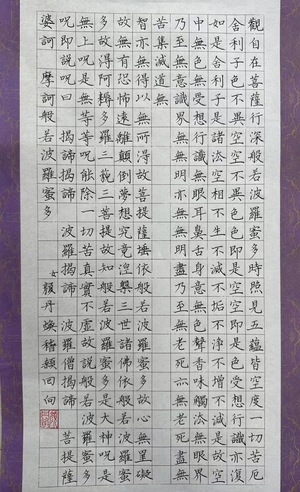 觀自在菩薩行深般若波羅蜜多時照見五蘊皆空度一切苦厄
舍利子色不異空空不異色色即是空空即是色受想行識亦復
如是舍利子是諸法空相不生不滅不垢不淨不增不減是故空
中無色無受想行識無眼耳鼻舌身意無色聲香味觸法無眼界
乃至無意識界無無明亦無無明盡乃至無老死亦無老死盡無
苦集滅道無
智亦無得以無所得故菩提薩埵依般若波羅蜜多故心無罣礙
故無有恐怖遠離顛倒夢想究竟涅槃三世諸佛依般若波羅蜜
多故得阿耨多羅三藐三菩提故知般若波羅蜜多是大神呪是
無上呪是無等等呪能除一切苦真實不虛故說般若波羅蜜多
呪即說呪曰 揭諦揭諦 波羅揭諦 波羅僧揭諦 菩提薩
婆訶 摩訶般若波羅蜜多 女 丹 稽顙回向